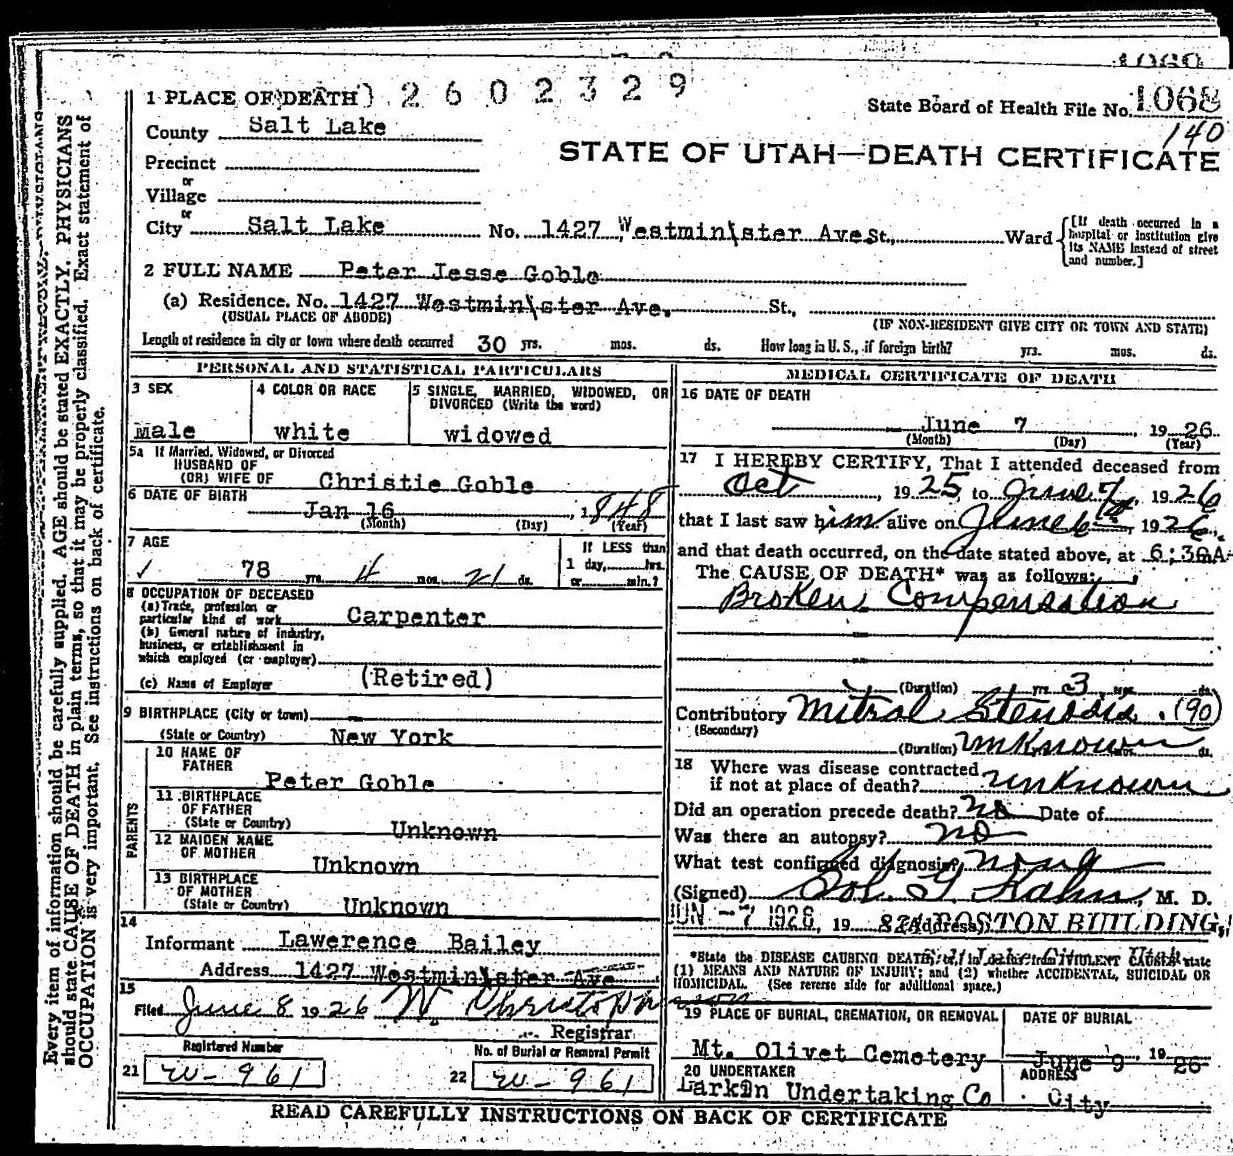 1 PLACE OF DEATH 2602329
State Board of Health File No. 1068
140
County Salt Lake
STATE OF UTAH—DEATH CERTIFICATE
Precinct
or
Village
or
City Salt Lake No. 1427 Westmin\ster Ave. St., Ward
[If death occurred in a hospital or institution give its NAME instead of street and number.]
2 FULL NAME Peter Jesse Goble
(a) Residence. No. 1427 Westmin\ster Ave. St.,
(USUAL PLACE OF ABODE) (IF NON-RESIDENT GIVE CITY OR TOWN AND STATE)
Length of residence in city or town where death occurred 30 yrs. mos. ds. How long in U. S., if foreign birth? yrs. mos. ds.
PERSONAL AND STATISTICAL PARTICULARS
3 SEX
male
4 COLOR OR RACE
white
5 SINGLE, MARRIED, WIDOWED, OR
DIVORCED (Write the word)
widowed
5a If Married, Widowed, or Divorced
HUSBAND OF
(OR) WIFE OF Christie Goble
6 DATE OF BIRTH
Jan 16, 1848
(Month) (Day) (Year)
7 AGE
78 yrs. 4 mos. 21 ds.
If LESS than
1 day, hrs.
or min.?
8 OCCUPATION OF DECEASED
(a) Trade, profession or
particular kind of work Carpenter
(b) General nature of industry,
business, or establishment in
which employed (or employer)
(c) Name of Employer (Retired)
9 BIRTHPLACE (City or town)
(State or Country) New York
PARENTS
10 NAME OF
FATHER
Peter Goble
11 BIRTHPLACE
OF FATHER
(State or Country) Unknown
12 MAIDEN NAME
OF MOTHER
Unknown
13 BIRTHPLACE
OF MOTHER
(State or Country) Unknown
14
Informant Lawerence Bailey
Address 1427 Westmin\ster Ave
15
Filed June 8 1926 W Christopherson
Registrar
Registered Number
21 W-961
No. of Burial or Removal Permit
22 W-961
MEDICAL CERTIFICATE OF DEATH
16 DATE OF DEATH
June 7, 1926
(Month) (Day) (Year)
17 I HEREBY CERTIFY, That I attended deceased from
Oct, 1925, to June 7, 1926
that I last saw him alive on June 6th, 1926,
and that death occurred, on the date stated above, at 6:30A
The CAUSE OF DEATH* was as follows:
Broken Compensation
(Duration) yrs. 3 mos. ds.
Contributory Mitral Stenosis (90)
(Secondary)
(Duration) unknown ds.
18 Where was disease contracted
if not at place of death? unknown
Did an operation precede death? no Date of
Was there an autopsy? no
What test confirmed diagnosis none
(Signed) Sol. G. Kahn, M. D.
JUN -7 1926, 19 (Address) BOSTON BUILDING,
*State the DISEASE CAUSING DEATH, or in deaths from VIOLENT CAUSES state
(1) MEANS AND NATURE OF INJURY; and (2) whether ACCIDENTAL, SUICIDAL OR
HOMICIDAL. (See reverse side for additional space.)
19 PLACE OF BURIAL, CREMATION, OR REMOVAL
Mt. Olivet Cemetery
DATE OF BURIAL
June 9, 1926
20 UNDERTAKER
Larkin Undertaking Co
ADDRESS
City
READ CAREFULLY INSTRUCTIONS ON BACK OF CERTIFICATE
Every item of information should be carefully supplied. AGE should be stated EXACTLY. PHYSICIANS
should state CAUSE OF DEATH in plain terms, so that it may be properly classified. Exact statement of
OCCUPATION is very important. See instructions on back of certificate.